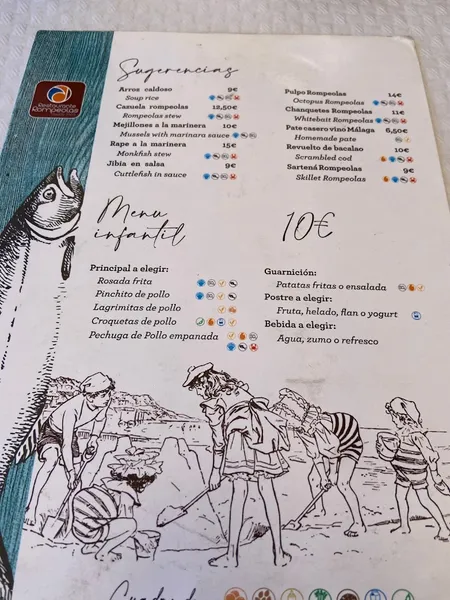 Restaurante
Rompeolas
Sugerencias
Arros caldoso 9€
Soup rice
Casuela rompeolas 12,50€
Rompeolas stew
Mejillones a la marinera 10€
Mussels with marinara sauce
Rape a la marinera 15€
Monkfish stew
Jibia en salsa 9€
Cuttlefish in sauce
Pulpo Rompeolas 14€
Octopus Rompeolas
Chanquetes Rompeolas 11€
Whitebait Rompeolas
Pate casero vino Málaga 6,50€
Homemade pate
Revuelto de bacalao 10€
Scrambled cod
Sartená Rompeolas 9€
Skillet Rompeolas
Menu
infantil
10€
Principal a elegir:
Rosada frita
Pinchito de pollo
Lagrimitas de pollo
Croquetas de pollo
Pechuga de Pollo empanada
Guarnición:
Patatas fritas o ensalada
Postre a elegir:
Fruta, helado, flan o yogurt
Bebida a elegir:
Agua, zumo o refresco